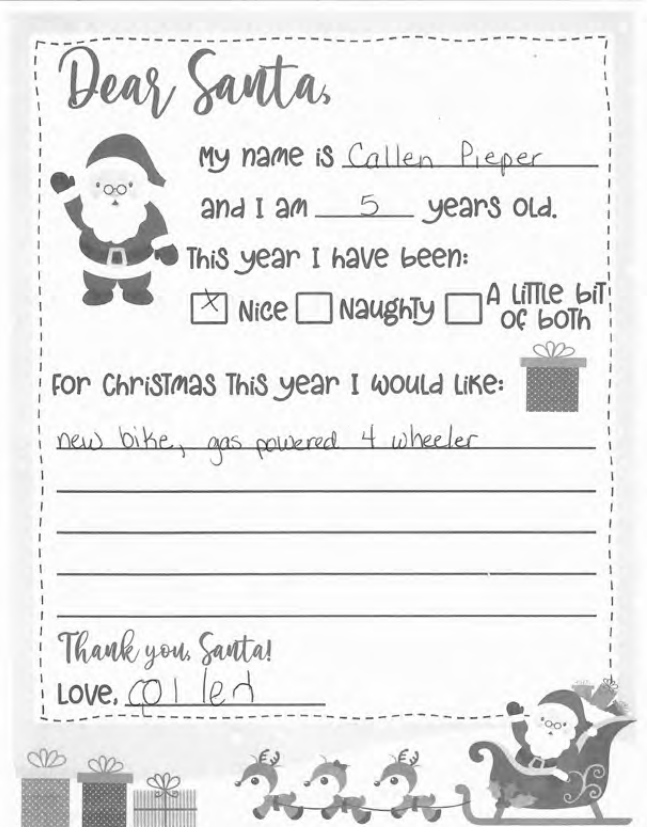 Dear Santa,
My name is Callen Pieper
and I am 5 years old.
This year I have been:
X Nice Naughty A little bit of both
For Christmas This year I would like:
new bike, gas powered 4 wheeler
Thank you, Santa!
Love, Callen